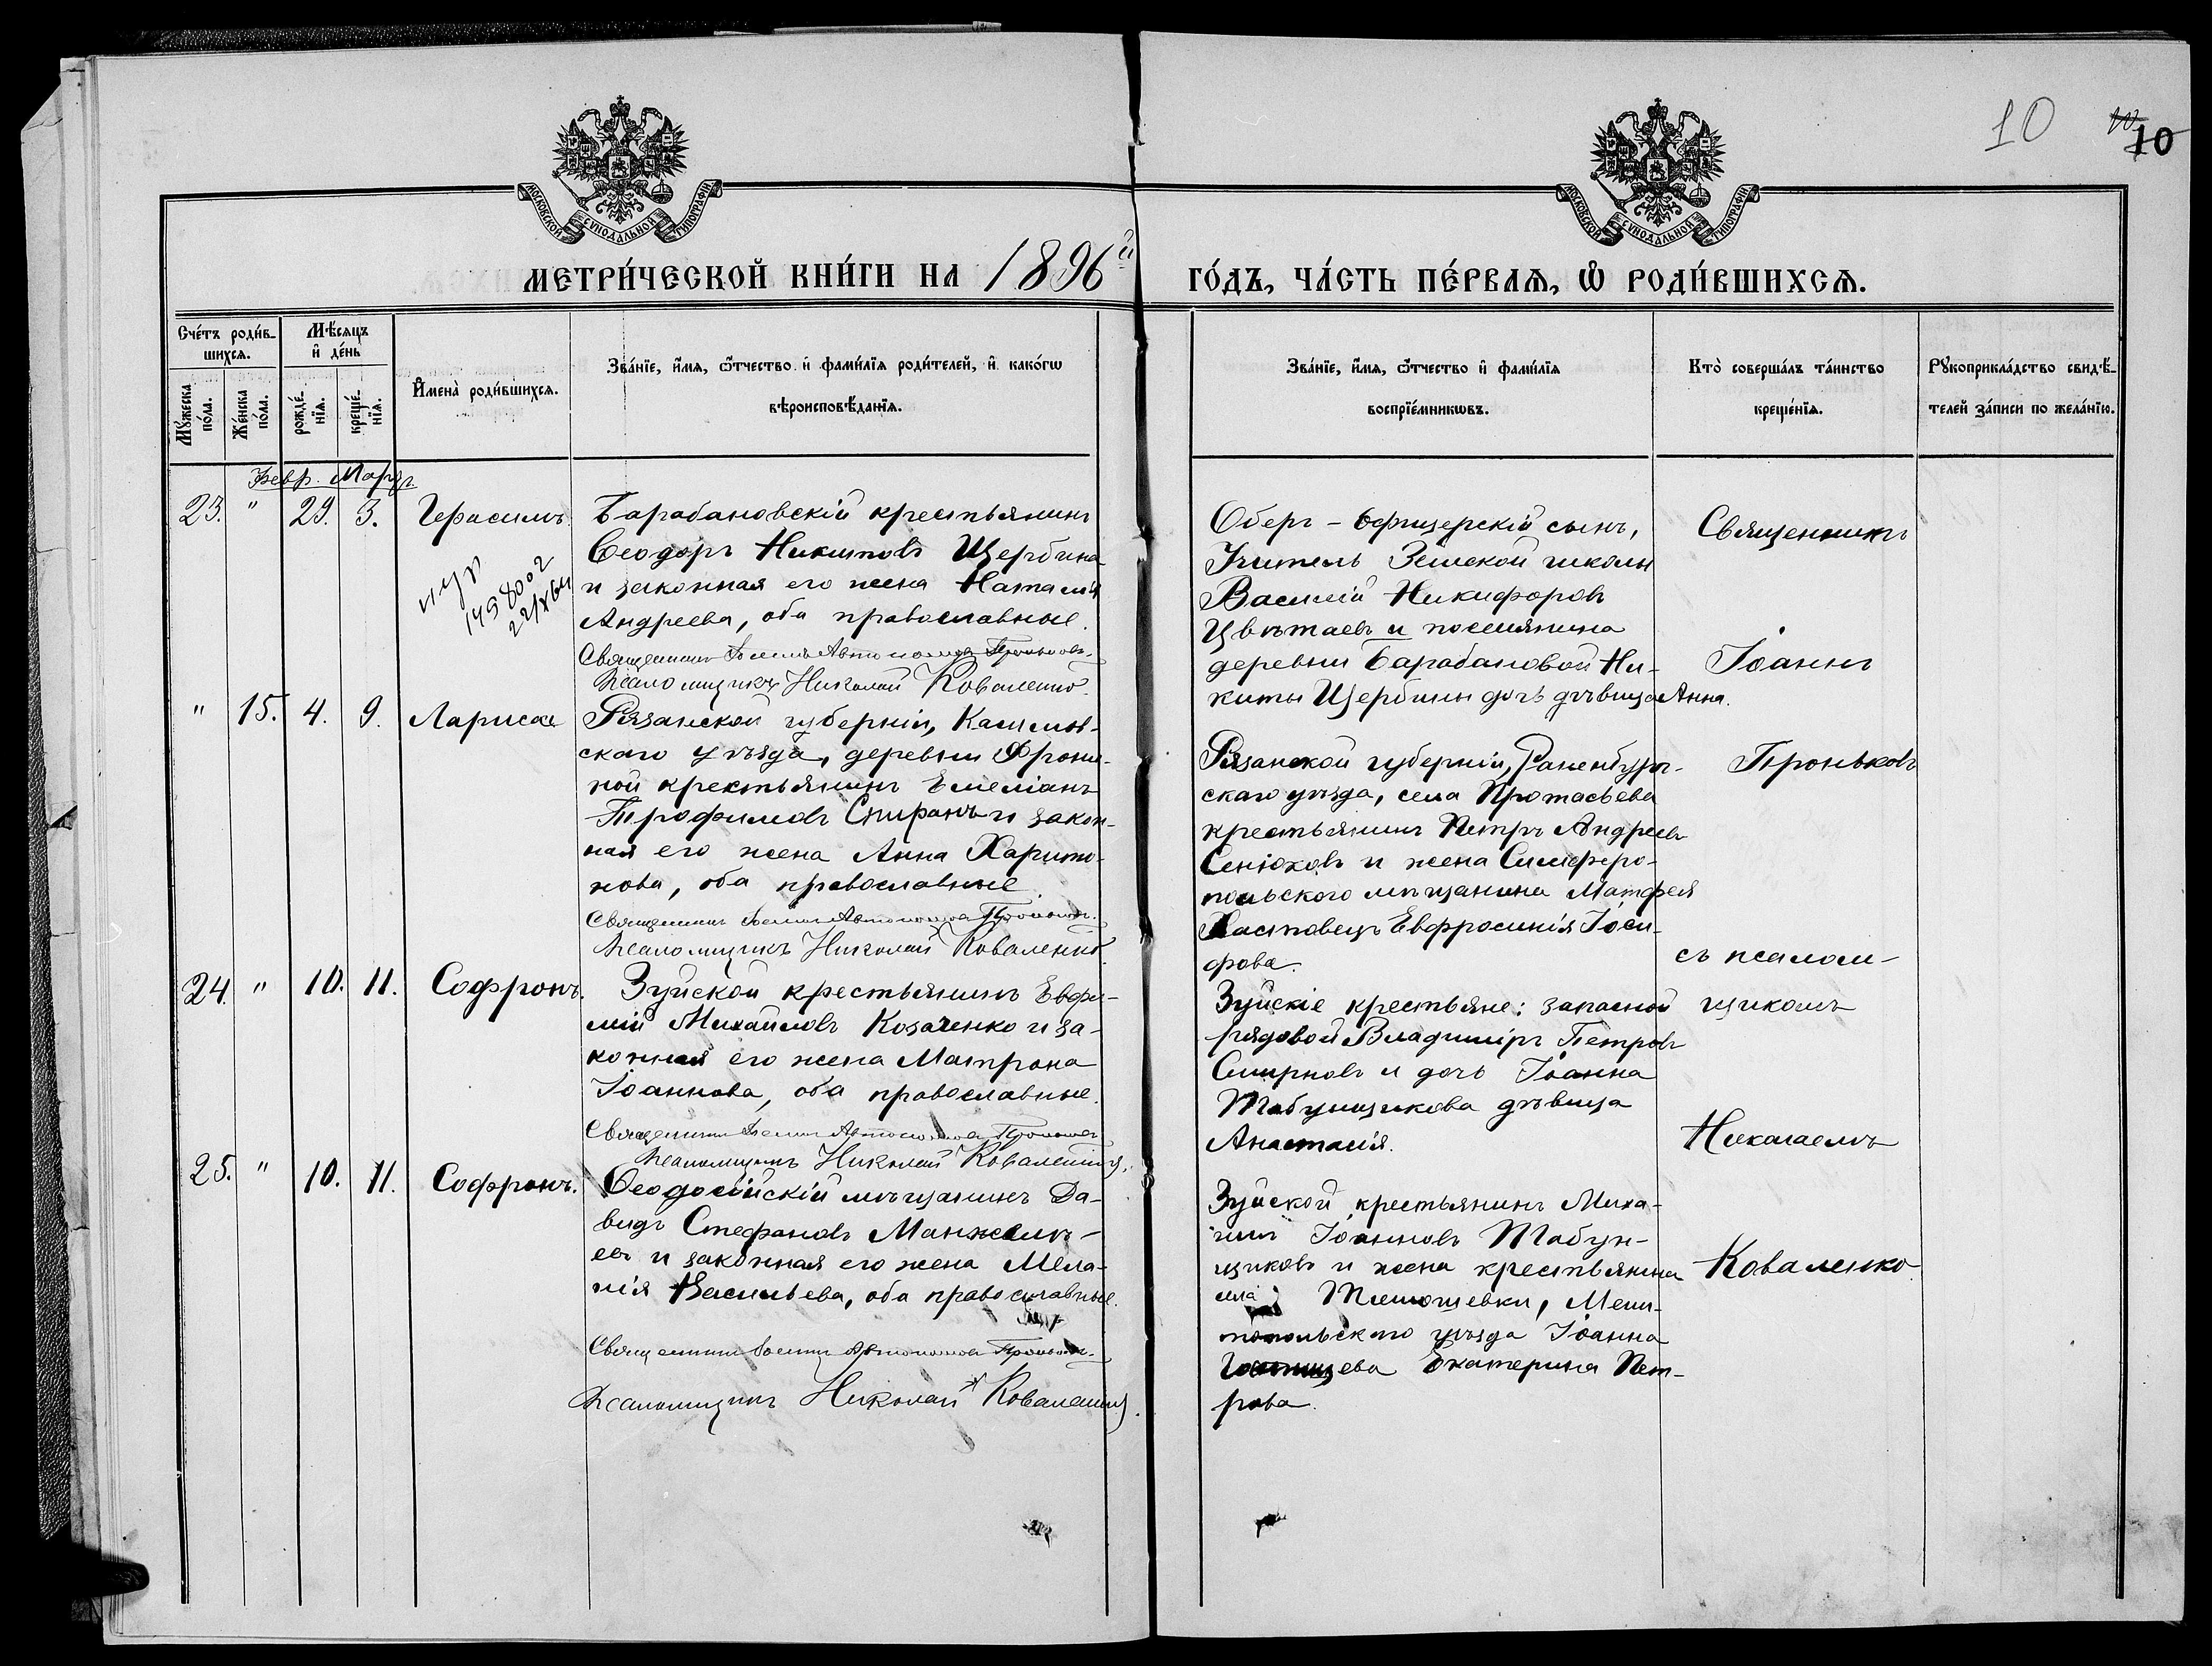 10
10
МОСКОВСКОЙ СѴНОДАЛЬНОЙ ТИПОГРАФІИ
МОСКОВСКОЙ СѴНОДАЛЬНОЙ ТИПОГРАФІИ
МЕТРИ́ЧЕСКОЙ КНИ́ГИ НА 1896й ГО́ДЪ, ЧА́СТЬ ПЕ́РВАѦ, Ѽ РОДИ́ВШИХСѦ.
Сче́тъ роди́в-
шихсѧ.
Мѣ́сѧцъ
и҆ де́нь
Мꙋ́жеска
по́ла.
Же́нска
по́ла.
рожде́-
нїѧ.
креще́-
нїѧ.
И҆мена̀ роди́вшихсѧ.
Зва́нїе, и҆́мѧ, ѻ҆́тчество и҆ фами́лїѧ роди́телей, и҆ како́гѡ
вѣроисповѣ́данїѧ.
Зва́нїе, и҆́мѧ, ѻ҆́тчество и҆ фами́лїѧ
воспрїе́мникѡвъ.
Кто̀ соверша́лъ та́инство
креще́нїѧ.
Рꙋкоприкла́дство свидѣ́-
телей за́писи по жела́нїю.
Февр. Мартъ.
23. " 29. 3. Герасимъ
Барабановскій крестьянинъ
Ѳеодоръ Никитовъ Щербина
и законная его жена Наталія
Андреева, оба православные.
Священникъ Іоаннъ Автономовъ Проньковъ.
Псаломщикъ Николай Коваленко.
Оберъ-офицерскій сынъ,
Учитель Земской школы
Василій Никифоровъ
Цвѣтаевъ и поселянина
деревни Барабановой Ни-
киты Щербины дочь дѣвица Анна.
" 15. 4. 9. Лариса
Рязанской губерніи, Касимов-
скаго уѣзда, деревни Фрони-
ной крестьянинъ Емеліанъ
Трофимовъ Спиранъ и закон-
ная его жена Анна Харито-
нова, оба православные.
Священникъ Іоаннъ Автономовъ Проньковъ.
Псаломщикъ Николай Коваленко.
Рязанской губерніи, Раненбург-
скаго уѣзда, села Протасьева
крестьянинъ Петръ Андреевъ
Сенюховъ и жена Симферо-
польского мѣщанина Матфея
Хастовецъ Евфросинія Іоси-
фова.
24. " 10. 11. Софронъ.
Зуйской крестьянинъ Евфи-
мій Михайловъ Козаченко и за-
конная его жена Матрона
Іоаннова, оба православные.
Священникъ Іоаннъ Автономовъ Проньковъ
Псаломщикъ Николай Коваленко.
Зуйскіе крестьяне: запасной
рядовой Владиміръ Петровъ
Смирновъ и дочь Іоанна
Табунщикова дѣвица
Анастасія.
25. " 10. 11. Софронъ.
Ѳеодосійскій мѣщанинъ Да-
видъ Стефановъ Манжелѣ-
евъ и законная его жена Мела-
нія Васильева, оба православные.
Священникъ Іоаннъ Автономовъ Проньковъ.
Псаломщикъ Николай Коваленко.
Зуйской крестьянинъ Миха-
илъ Іоанновъ Табун-
щиковъ и жена крестьянина
села Тимошевки, Мели-
топольскаго уѣзда Іоанна
Екатерина Пет-
рова.
Священникъ
Іоаннъ
Проньковъ
съ псалом-
щикомъ
Николаемъ
Коваленко.